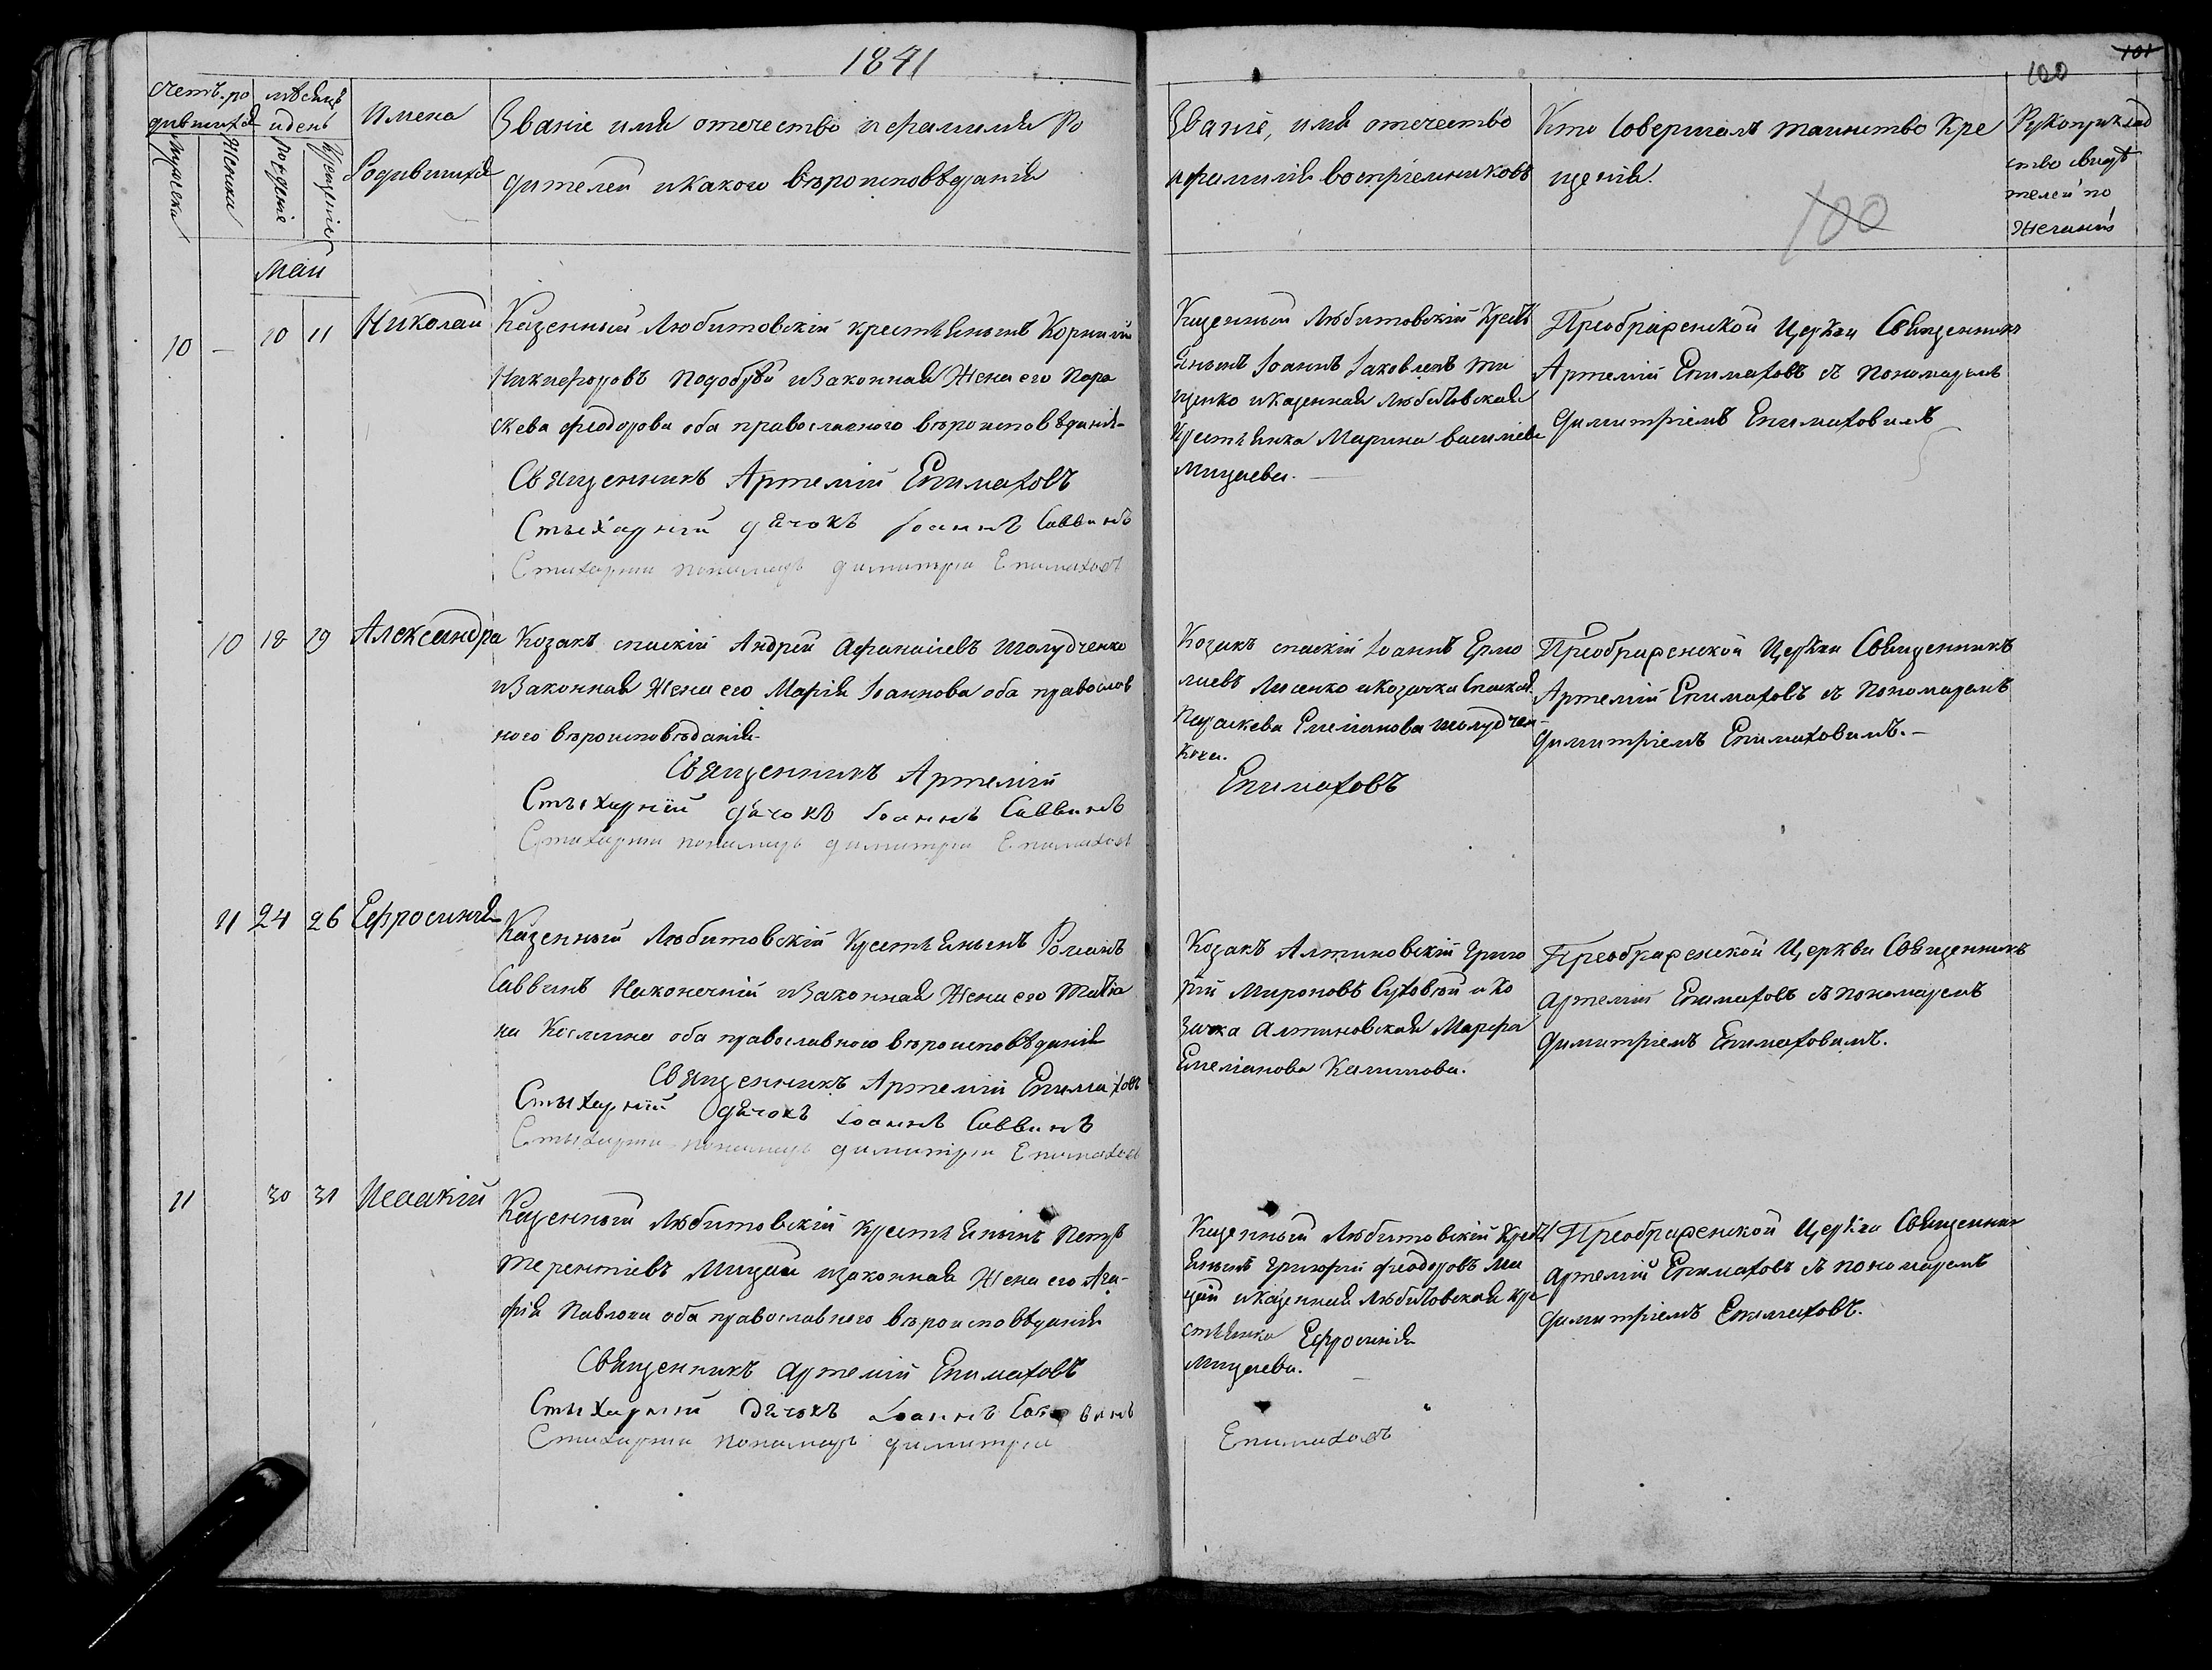 1841
101
100
Счетъ ро
дившихся
мѣсяцъ
и день
Имена
Родившихся
Званіе имя отечество и фамилия Ро
дителей и какого вѣроисповѣданія
Званіе, имя отечество
и фамилія воспріемниковъ
Кто совершалъ таинство Кре
щенія.
Рукоприклад
ство свидѣ
телей по
Желанію
мужеска
Женска
рожденіе
крещеніе
100
Маи
10 — 10 11 Николаи
Казенный Любитовскій крестьянинъ Корнилій
Никифоровъ Подобуй и Законная Жена его Пара
скева Феодорова оба православного вѣроисповѣданія
Священникъ Артемій Епимаховъ
Стыхарный дячокъ Іоаннъ Саввинъ
Стихарни пономарь димитріи Епимаховъ
Казенный Любитовскій Кресть
янинъ Іоаннъ Іаковлевъ Ти
щенко и Казенная Любитовская
Крестьянка Марина василіева
Мицаева.
Преображенской Церкви Священникъ
Артемій Епимаховъ съ Пономаремъ
Димитріемъ Епимаховимъ
10 18 19 Александра
Козакъ спаскій Андрей Афанасіевъ Шолудченко
и Законная Жена его Марія Іоаннова оба православ
ного вѣроисповѣданія
Священникъ Артемій
Стыхарный дячокъ Іоаннъ Саввинъ
Стихарни пономарь димитріи Епимаховъ
Козакъ спаскій Іоаннъ Ермо
лаевъ Лисенко и козачка Спаская
Параскева Емеліанова Шолудчен-
кова.
Епимаховъ
Преображенской Церкви Священникъ
Артемій Епимаховъ съ Пономаремъ
Димитріемъ Епимаховимъ.—
11 24 26 Ефросинія
Казенный Любитовскій Крестьянинъ Романъ
Саввинъ Наконечній и Законная Жена его Татіа
на Космина оба православного вѣроисповѣданія
Священникъ Артемій Епимаховъ
Стыхарный дячокъ Іоаннъ Саввинъ
Стыхарни пономарь димитріи Епимаховъ
Козакъ Алтиновскій Григо
рій Мироновъ Суховой и Ко
зачка Алтиновская Марфа
Емеліанова Калинова.
Преображенской Церкви Священникъ
Артемій Епимаховъ съ пономаремъ
Димитріемъ Епимаховимъ.
11 30 31 Исаакій
Казенный Любитовскій крестьянинъ Петръ
Терентіевъ Мицай и законная Жена его Ага-
фія Павлова оба православного вѣроисповѣданія
Священникъ Артемій Епимаховъ
Стыхарный дячокъ Іоаннъ Саввинъ
Стихарни пономарь димитріи
Казенный Любитовскій Кресть
янинъ Григорій Феодоровъ Ми
цай и Казенная Любитовская кре
стьянка Ефросинія
Мицаева.
Епимаховъ
Преображенской Церкви Священникъ
Артемій Епимаховъ съ пономаремъ
Димитріемъ Епимаховъ.